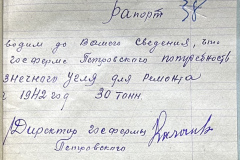 рапорт 38
водим до Вашего сведения, что
госферме Петровского потребность
зного угля для ремонта
1942 год 30 тонн.
Директор госфермы
Петровского